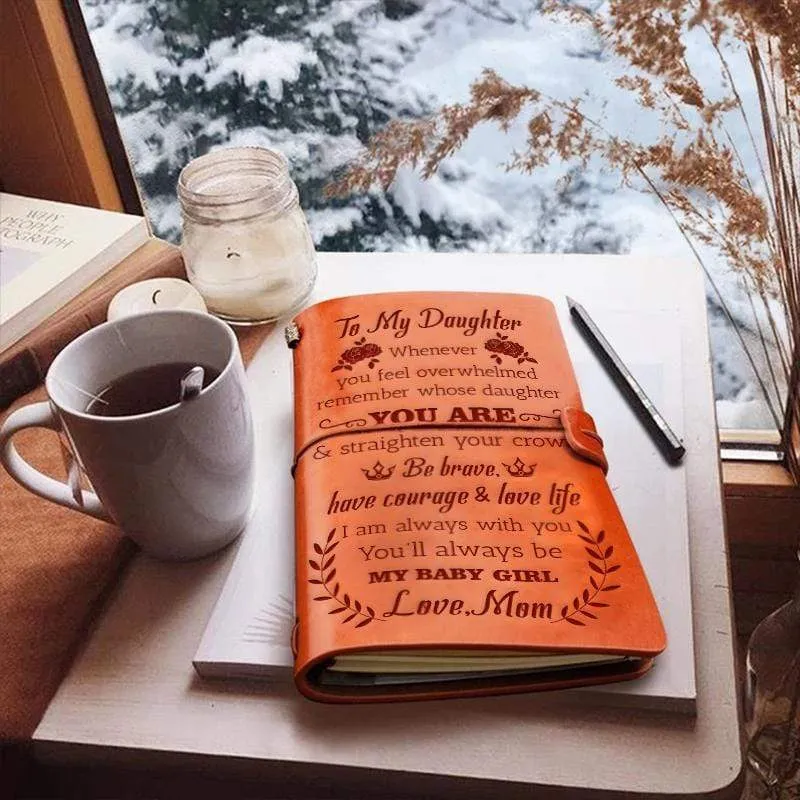 WHY
PEOPLE
PHOTOGRAPH
To My Daughter
Whenever
you feel overwhelmed
remember whose daughter
YOU ARE
& straighten your crown
Be brave,
have courage & love life
I am always with you
You'll always be
MY BABY GIRL
Love, Mom